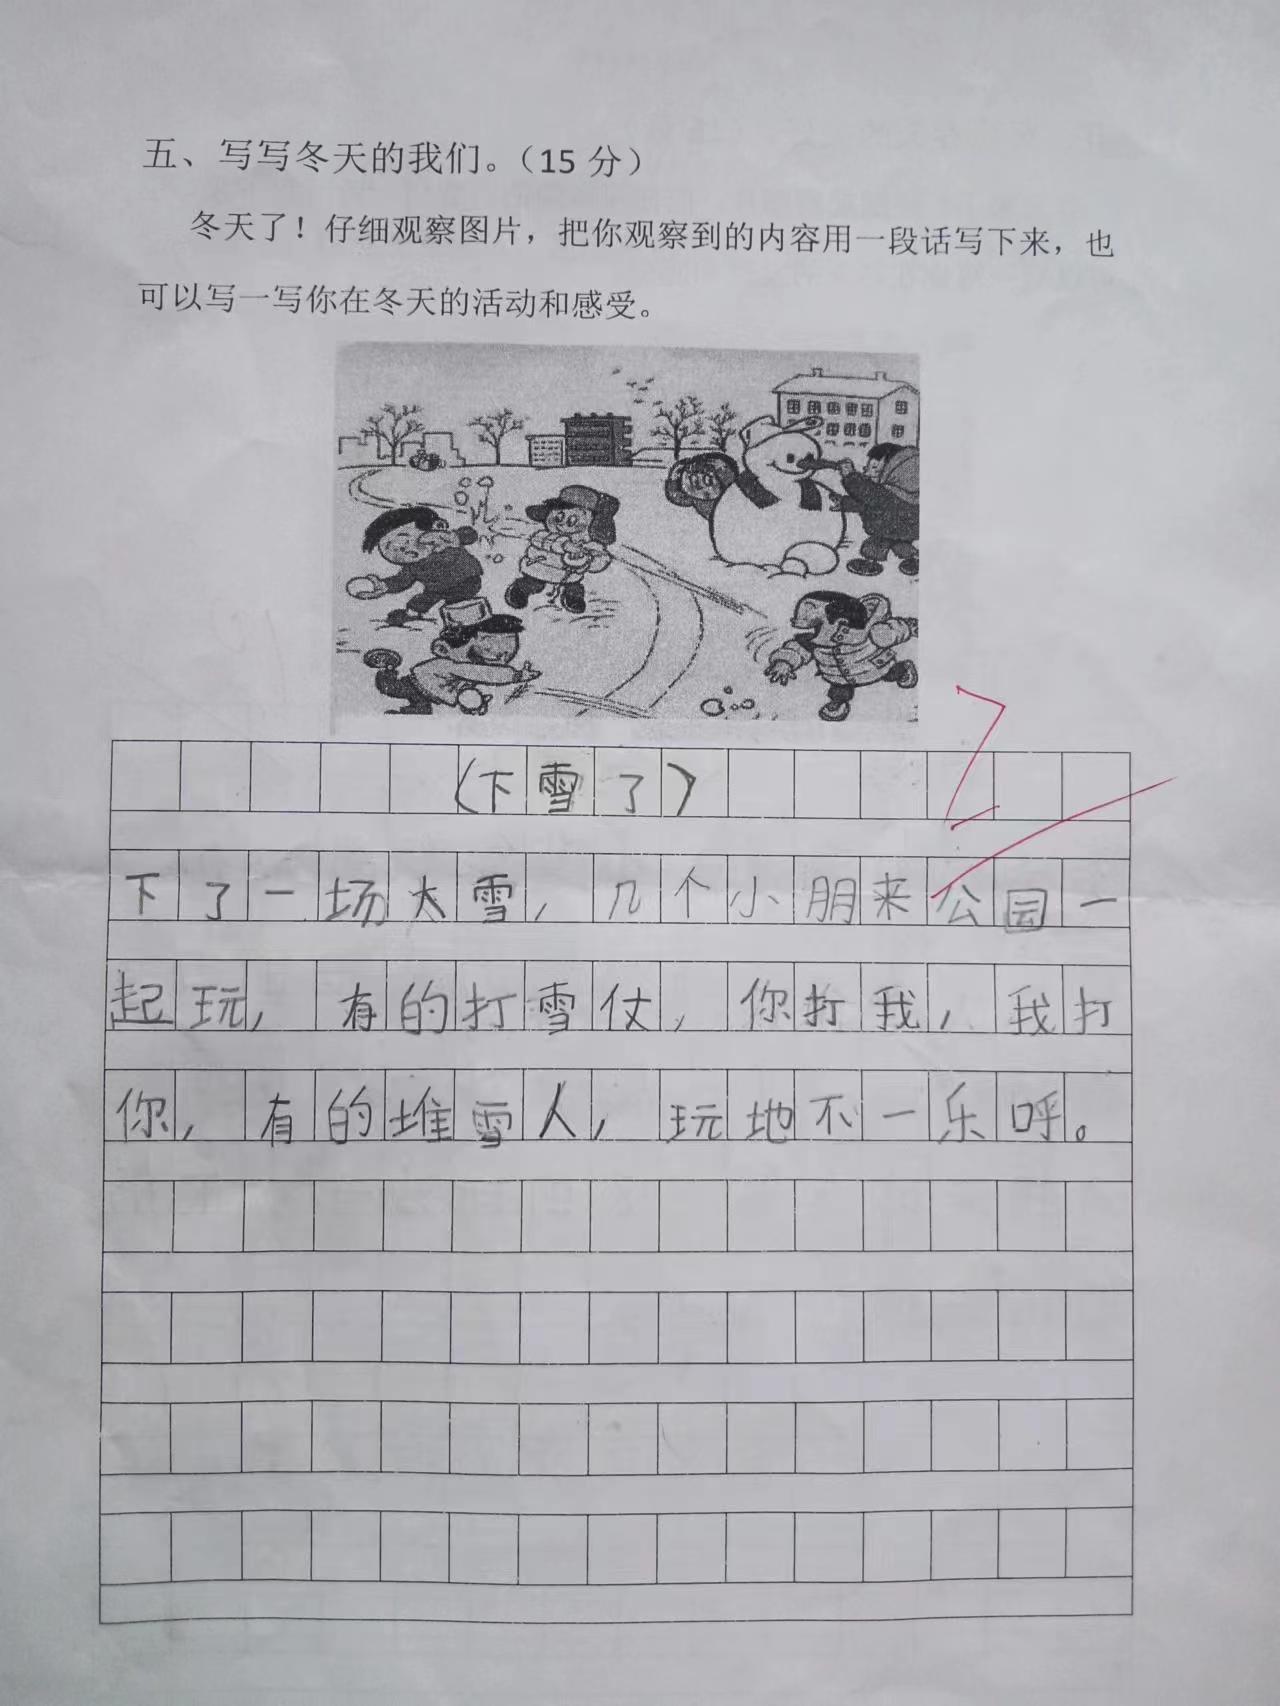 五、写写冬天的我们。（15 分）
冬天了！仔细观察图片，把你观察到的内容用一段话写下来，也
可以写一写你在冬天的活动和感受。
（下雪了）
下了一场大雪，几个小朋来公园一
起玩，有的打雪仗，你打我，我打
你，有的堆雪人，玩地不一乐呼。